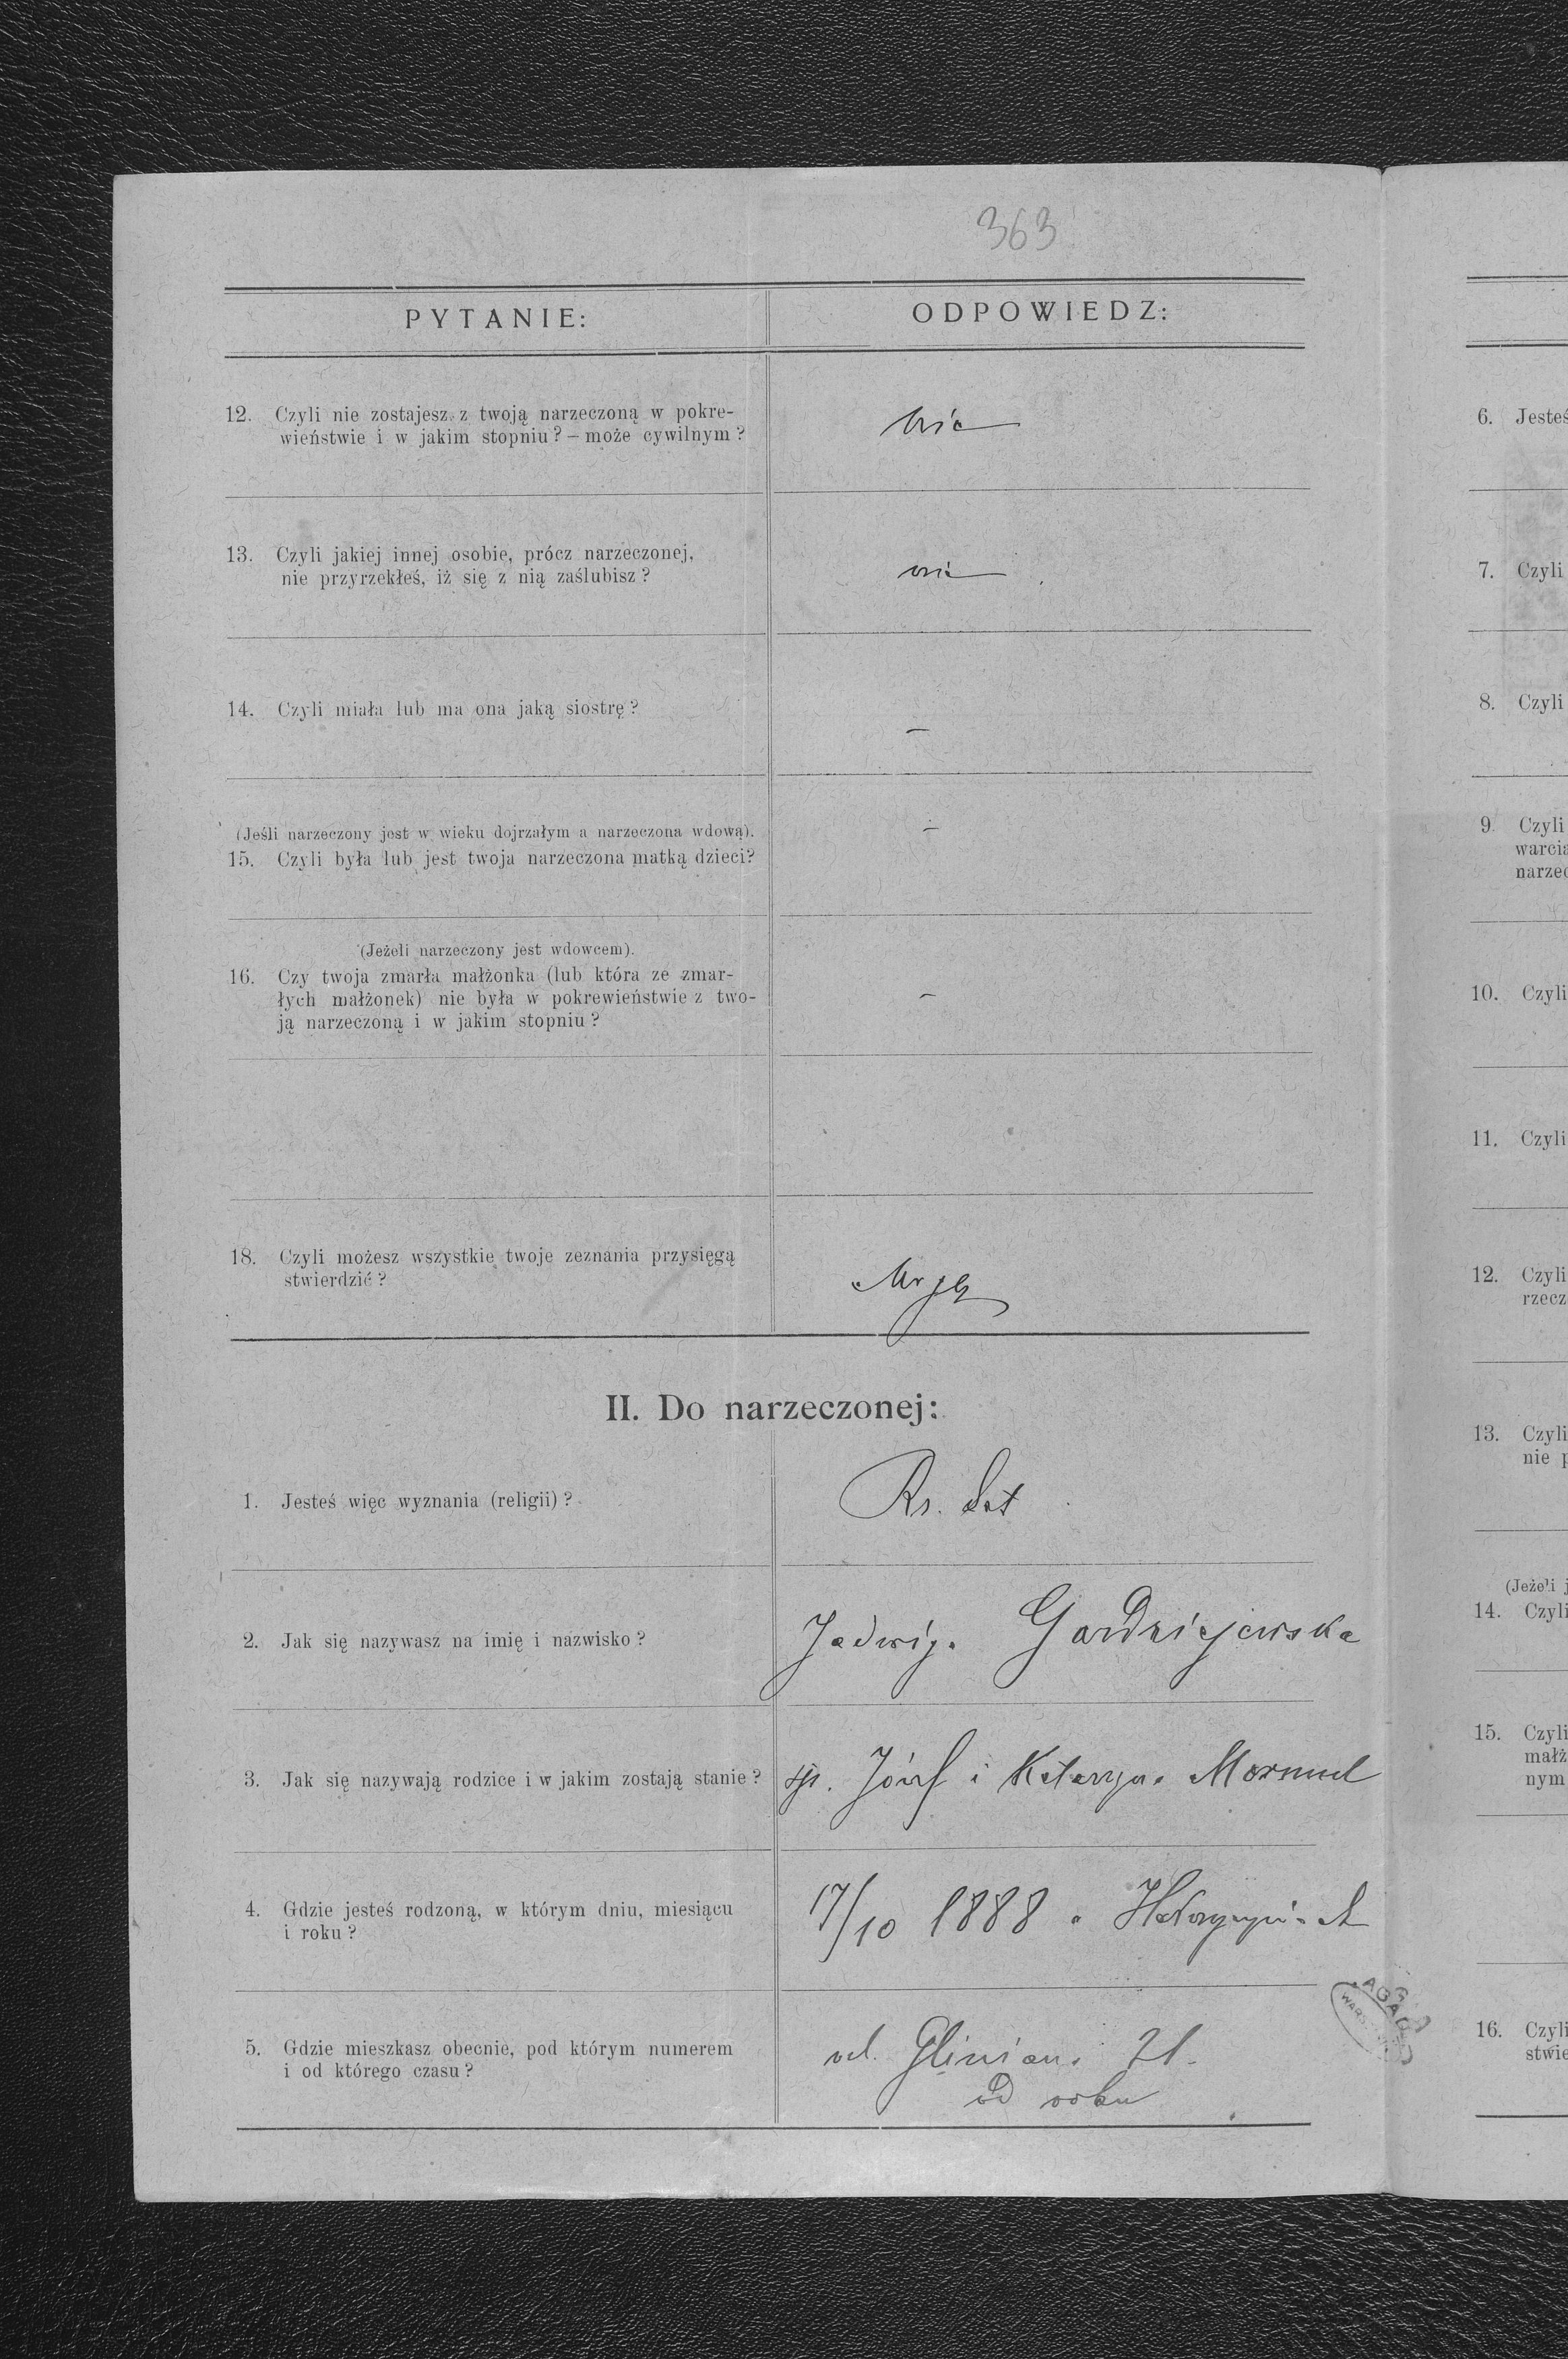 363
PYTANIE:
ODPOWIEDZ:
12. Czyli nie zostajesz z twoją narzeczoną w pokre-
wieństwie i w jakim stopniu? – może cywilnym?
nie
13. Czyli jakiej innej osobie, prócz narzeczonej,
nie przyrzekłeś, iż się z nią zaślubisz?
nie
14. Czyli miała lub ma ona jaką siostrę?
–
(Jeśli narzeczony jest w wieku dojrzałym a narzeczona wdową).
15. Czyli była lub jest twoja narzeczona matką dzieci?
–
(Jeżeli narzeczony jest wdowcem).
16. Czy twoja zmarła małżonka (lub która ze zmar-
łych małżonek) nie była w pokrewieństwie z two-
ją narzeczoną i w jakim stopniu?
–
18. Czyli możesz wszystkie twoje zeznania przysięgą
stwierdzić?
II. Do narzeczonej:
1. Jesteś więc wyznania (religii)?
Rz. Lat
2. Jak się nazywasz na imię i nazwisko?
Jadwiga Gordziejewska
3. Jak się nazywają rodzice i w jakim zostają stanie?
śp. Józef i Katarzyna Mormul
4. Gdzie jesteś rodzoną, w którym dniu, miesiącu
i roku?
17/10 1888
5. Gdzie mieszkasz obecnie, pod którym numerem
i od którego czasu?
ul. Gliniana 21.
od roku
AGAD
6. Jesteś
7. Czyli
8. Czyli
9. Czyli
warcia
narzec
10. Czyli
11. Czyli
12. Czyli
rzecz
13. Czyli
nie p
(Jeżeli j
14. Czyli
15. Czyli
małż
nym
16. Czyli
stwie